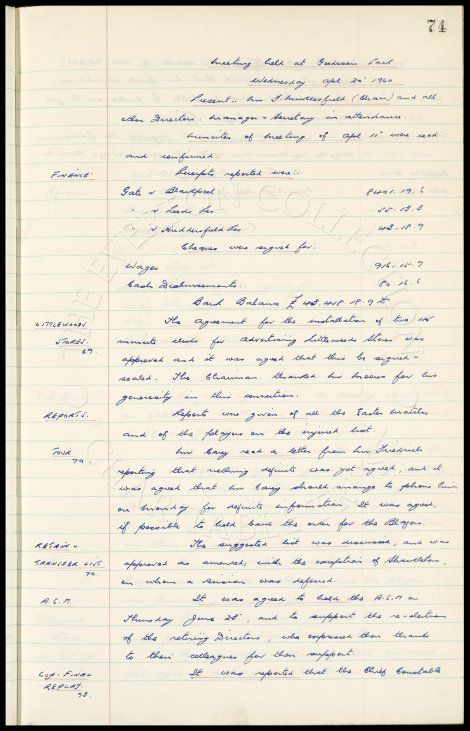 74
Meeting held at Goodison Park
Wednesday Apl 20th 1960
Present:- Mr F. Micklesfield (Chair) and all
other Directors. Manager & Secretary in attendance
Minutes of meeting of Apl 11th were read
and confirmed.
FINANCE
Receipts reported were:-
Gate v Blackpool 8401. 19. 6
" v Leeds Res 55. 13. 3
" v Huddersfield Res 43. 18. 9
Cheques were signed for:-
Wages 916. 15. 7
Cash Disbursements. 80. 16. 6
Bank Balance £ 43,458. 18. 9
LITTLEWOODS STORES. 69.
The Agreement for the installation of two
minute clocks for advertising Littlewoods Stores was
approved and it was agreed that this be signed &
sealed. The Chairman thanded Mr Moores for his
generosity in this connection.
REPORTS.
Reports were given of all the Easter matches
and of the players on the injured list.
TOUR 70
Mr Carey read a letter from Mr Friedrich
reporting that nothing definite was yet agreed, and it
was agreed that Mr Carey should arrange to phone him
on Monday for definite information, It was agreed,
if possible to hold back the order for the Blazers.
RETAIN & TRANSFER LIST 70.
The suggested list was discussed, and was
approved as amended, with the exception of Shackleton,
on whom a decision was deferred.
A.G.M.
It was agreed to hold the A.G.M on
Thursday June 23rd, and to support the re-election
of the retiring Directors, who expressed their thanks
to their colleagues for their support.
CUP-FINAL REPLAY.
It was reported that the Chief Constable